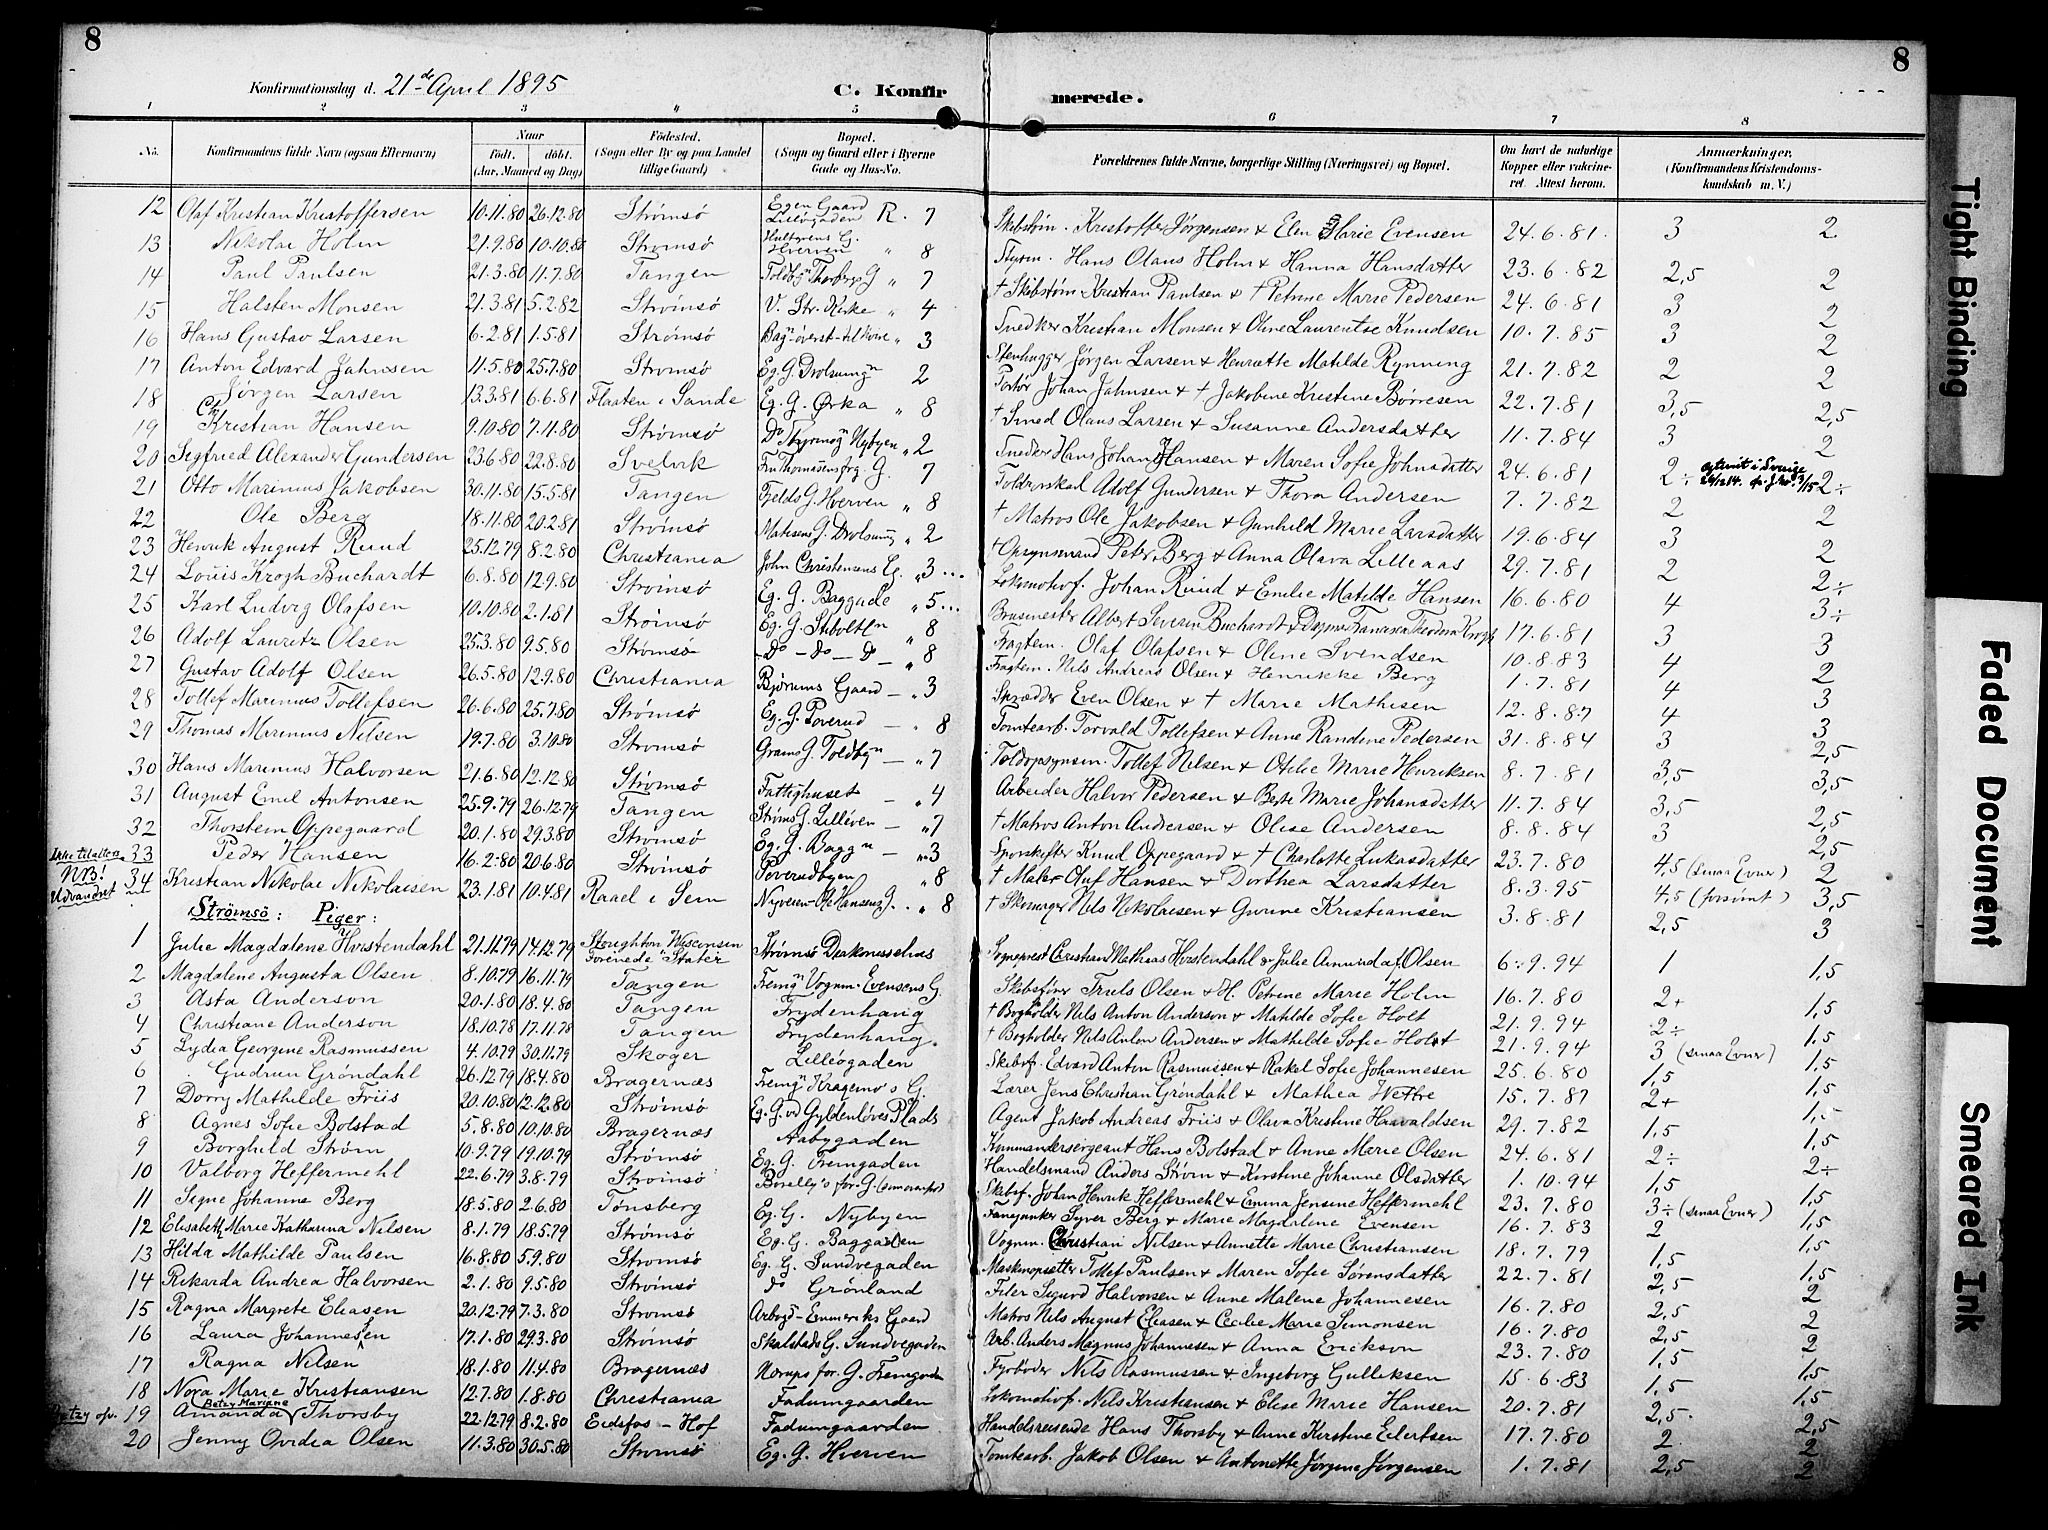 8
8
Konfirmationsdag d. 21de April 1895
C. Konfirmerede.
1 2 3 4 5 6 7 8
No. Konfirmandens fulde Navn (ogsaa Efternavn) Naar født. døbt. (Aar, Maaned og Dag) Fødested. (Sogn eller By og paa Landet tillige Gaard) Bopæl. (Sogn og Gaard eller i Byerne Gade og Hus-No. Forældrenes fulde Navne, borgerlige Stilling (Næringsvei) og Bopæl. Om havt de naturlige Kopper eller vakcineret. Attest herom. Anmærkninger. (Konfirmandens Kristendomskundskab m. V.)
12 Olaf Kristian Kristoffersen 10.11.80 26.12.80 Strømsø Egen Gaard Lilløgaden R. 7 Skibstøm. Kristoffer Jørgensen & Elen Marie Evensen 24.6.81. 3 2
13 Nikolai Holm 21.9.80 10.10.80 Strømsø Hultgrens G. Hverven " 8 Styrm. Hans Olaus Holm & Hanna Hansdatter 23.6.82 2,5 2
14 Paul Paulsen 21.3.80 11.7.80 Tangen Toldbn Thorbergs G " 7 † Skibstøm. Kristian Paulsen & † Petrine Marie Pedersen 24.6.81 3 2
15 Halsten Monsen 21.3.81 5.2.82 Strømsø V. Str. Kirke " 4 Snedker Kristian Monsen & Oline Laurentse Knudsen 10.7.85 3 2
16 Hans Gustav Larsen 6.2.81 1.5.81 Strømsø " 3 Stenhugger Jørgen Larsen & Henriette Matilde Rynning 21.7.82 2 2
17 Anton Edvard Jahnsen 11.5.80 25.7.80 Strømsø Eg. G. Drolsumgn 2 Johan Jahnsen & † Jakobine Kristine Børresen 22.7.81 3,5 2,5
18 Jørgen Larsen 13.3.81 6.6.81 Flaaten i Sande Eg. G. Ørka " 8 † Smed Olaus Larsen & Susanne Andersdatter 11.7.84 3 2
19 Kristian Hansen 9.10.80 7.11.80 Strømsø Nybyen " 2 Hans Johan Hansen & Maren Sofie Johnsdatter 24.6.81 2÷ 2÷
20 Segfried Alexander Gundersen 23.6.80 22.8.80 Svelvik G. 7 Adolf Gundersen & Thora Andersen 7.7.82 2 2
21 Otto Marinius Jakobsen 30.11.80 15.5.81 Tangen Fjelds G. Hverven " 8 † Matros Ole Jakobsen & Gunhild Marie Larsdatter 19.6.84 3 2
22 Ole Berg 18.11.80 20.2.81 Strømsø Matisens G. Drolsumg " 2 † Opsynsmand Peter Berg & Anna Olava Lilleaas 29.7.81 2 2÷
23 Henrik August Ruud 25.12.79 8.2.80 Christiania John Christensens Eg. " 3 Lokomotivf. Johan Ruud & Emilie Matilde Hansen 16.6.80 4 3÷
24 Louis Krogh Buchardt 6.8.80 12.9.80 Strømsø Eg. G. Baggade " 5 Albert Severin Buchardt & Dagmar Francisca Theodora Krogh 17.6.81 3 3
25 Karl Ludvig Olafsen 10.10.80 2.1.81 Strømsø Eg. G. Stiboltn " 8 Fragtem. Olaf Olafsen & Oline Svendsen 10.8.83 4 2
26 Adolf Lauritz Olsen 25.3.80 9.5.80 Strømsø - Do - Do - Do - " 8 Fragtem. Nils Andreas Olsen & Henrikke Berg 1.7.81 4 3
27 Gustav Adolf Olsen 26.5.80 12.9.80 Christiania Bjørums Gaard - " 3 Skrædder Even Olsen & † Marie Mathisen 12.8.87 4 3
28 Tollef Marinius Tollefsen 26.6.80 25.7.80 Strømsø Eg. G. Poverud - " 8 Tomtearb. Torvald Tollefsen & Anne Randine Pedersen 31.8.84 3 2,5
29 Thomas Marinius Nilsen 19.7.80 3.10.80 Strømsø Grams G. Toldbn - " 7 Toldopsynsm. Tollef Nilsen & Otilie Marie Henriksen 8.7.81 3,5 3,5
30 Hans Marinius Halvorsen 21.6.80 12.12.80 Strømsø Fattighuset - " 4 Arbeider Halvor Pedersen & Berte Marie Johansdatter 11.7.84 3,5 2,5
31 August Emil Antonsen 25.9.79 26.12.79 Tangen Strøms G. Lilleven - " 7 † Matros Anton Andersen & Olise Andersen 8.8.84 3 2,5
32 Thorstein Oppegaard 20.1.80 29.3.80 Strømsø Eg. G. Baggn - " 3 Sporskifter Knud Oppegaard & † Charlotte Lukasdatter 23.7.80 4,5 (smaa Evner) 2
33 Peder Hansen 16.2.80 20.6.80 Strømsø Poverudbyen " 8 † Maler Oluf Hansen & Dorthea Larsdatter 8.3.95 4,5 (forsømt) 3,5
34 Kristian Nikolai Nikolaisen 23.1.81 10.4.81 Raael i Sem Nyveien Ole Hansens G. " 8 † Skomager Nils Nikolaisen & Gurine Kristiansen 3.8.81 2,5 3
NB! Udvandret
Strømsø: Piger:
1 Julie Magdalene Horstendahl 21.11.79 14.12.79 Stoughton Wisconsin Forenede Stater Strømsø Diakonisselhus Sogneprest Christian Mathias Horstendahl & Julie Amunda f. Olsen 6.9.94 1 1,5
2 Magdalene Augusta Olsen 8.10.79 16.11.79 Tangen Fremgn Vognm. Evensens G. Skibsfører Truls Olsen & H. Petrine Marie Holm 16.7.80 2+ 1,5
3 Asta Anderson 20.1.80 18.4.80 Tangen Frydenhaug † Bogholder Nils Anton Anderson & Matilde Sofie Holt 21.9.94 2÷ 1,5
4 Christiane Anderson 18.10.78 17.11.78 Tangen Frydenhaug. † Bogholder Nils Anton Andersen & Mathilde Sofie Holst 21.9.94 3 (smaa Evner) 1,5
5 Lydia Georgine Rasmussen 4.10.79 30.11.79 Skoger Lilleøgaden Skibsf. Edvard Anton Rasmussen & Rakel Sofie Johannesen 25.6.80 1,5 1,5
6 Gudrun Grøndahl 26.12.79 18.4.80 Bragernæs Fremgn Kragemo's G. Lærer Jens Christian Grøndahl & Mathea Wettre 15.7.87 2+ 1,5
7 Dorry Mathilde Friis 20.10.80 12.12.80 Strømsø Eg. G. vd Gyldenløves Plads Agent Jakob Andreas Friis & Olava Kristine Haavaldsen 29.7.82 1,5 1,5
8 Agnes Sofie Bolstad 5.8.80 10.10.80 Bragernæs Aabygaden Kommandersergeant Hans Bolstad & Anne Marie Olsen 24.6.81 2÷ 2÷
9 Borghild Strøm 10.9.79 19.10.79 Strømsø Eg. G. Fremgaden Handelsmand Anders Strøm & Kirstine Johanne Olsdatter 1.10.94 1,5 1,5
10 Valborg Heffermehl 22.6.79 3.8.79 Strømsø Skibsf. Johan Henrik Heffermehl & Emma Jensine Heffermehl 23.7.80 3÷ (smaa Evner) 1,5
11 Signe Johanne Berg 18.5.80 2.6.80 Tønsberg Eg. G. Nybyen Fanejunker Syver Berg & Marie Magdalene Evensen 16.7.83 2 1,5
12 Elisabeth Marie Katharina Nilsen 8.1.79 18.5.79 Strømsø Eg. G. Baggaden Vognm. Christian Nilsen & Annette Marie Christiansen 18.7.79 1,5 1,5
13 Hilda Mathilde Paulsen 16.8.80 5.9.80 Strømsø Eg. G. Sundvegaden Maskinopsætter Tollef Paulsen & Maren Sofie Sørensdatter 22.7.81 2,5 2
14 Rikarda Andrea Halvorsen 2.1.80 9.5.80 Strømsø do Grønland Filer Sigurd Halvorsen & Anne Malene Johannesen 16.7.80 2,5 2
15 Ragna Margrete Eliasen 20.12.79 7.3.80 Strømsø Arbgd - Emmeriks Gaard Matros Nils August Eliasen & Cecilie Marie Simonsen 16.7.80 2,5 2
16 Laura Johannesen 17.1.80 29.3.80 Strømsø Skalstads G. Sundvegaden Arb. Anders Magnus Johannesen & Anna Erickson 23.7.80 1,5 1,5
17 Ragna Nilsen 18.1.80 11.4.80 Bragernæs Nærups for. G. Fremgaden Fyrbøder Nils Rasmussen & Ingeborg Gulliksen 15.6.83 1,5 1,5
18 Nora Marie Kristiansen 12.7.80 1.8.80 Christiania Fadumgaarden Lokomotivf. Nils Kristiansen & Elise Marie Hansen 20.7.81 2,5. 2,5
Betzy Mariane
19 Amanda Thorsby 22.12.79 8.2.80 Eidsfos - Hof Fadumgaarden Handelsreisende Hans Thorsby & Anne Kirstine Eilertsen 17.7.80 2 2
20 Jenny Ovidia Olsen 11.3.80 30.5.80 Strømsø Eg. G. Hverven Tomtearb. Jakob Olsen & Antonette Jørgine Jørgensen 1.7.81 2,5 2
Tight Binding
Faded Document
Smeared Ink